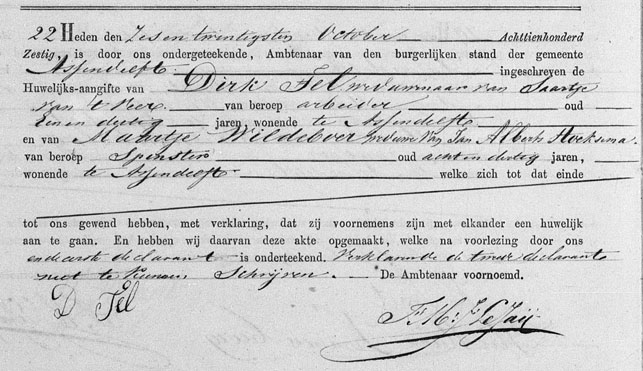 22 Heden den Zes en twintigsten October Achttienhonderd
Zestig, is door ons ondergeteekende, Ambtenaar van den burgerlijken stand der gemeente
Assendelft ingeschreven de
Huwelijks-aangifte van Dirk Tel weduwnaar van Saartje
van 't Veer van beroep arbeider oud
Een en dertig jaren, wonende te Assendelft
en van Maartje Wildeboer weduwe van Jan Alberts Hoeksma
van beroep Spinster oud acht en dertig jaren,
wonende te Assendelft welke zich tot dat einde
tot ons gewend hebben, met verklaring, dat zij voornemens zijn met elkander een huwelijk
aan te gaan. En hebben wij daarvan deze akte opgemaakt, welke na voorlezing door ons
en de eerste declarant is onderteekend. Verklarende de tweede declarante
niet te kunnen Schrijven. De Ambtenaar voornoemd.
D Tel